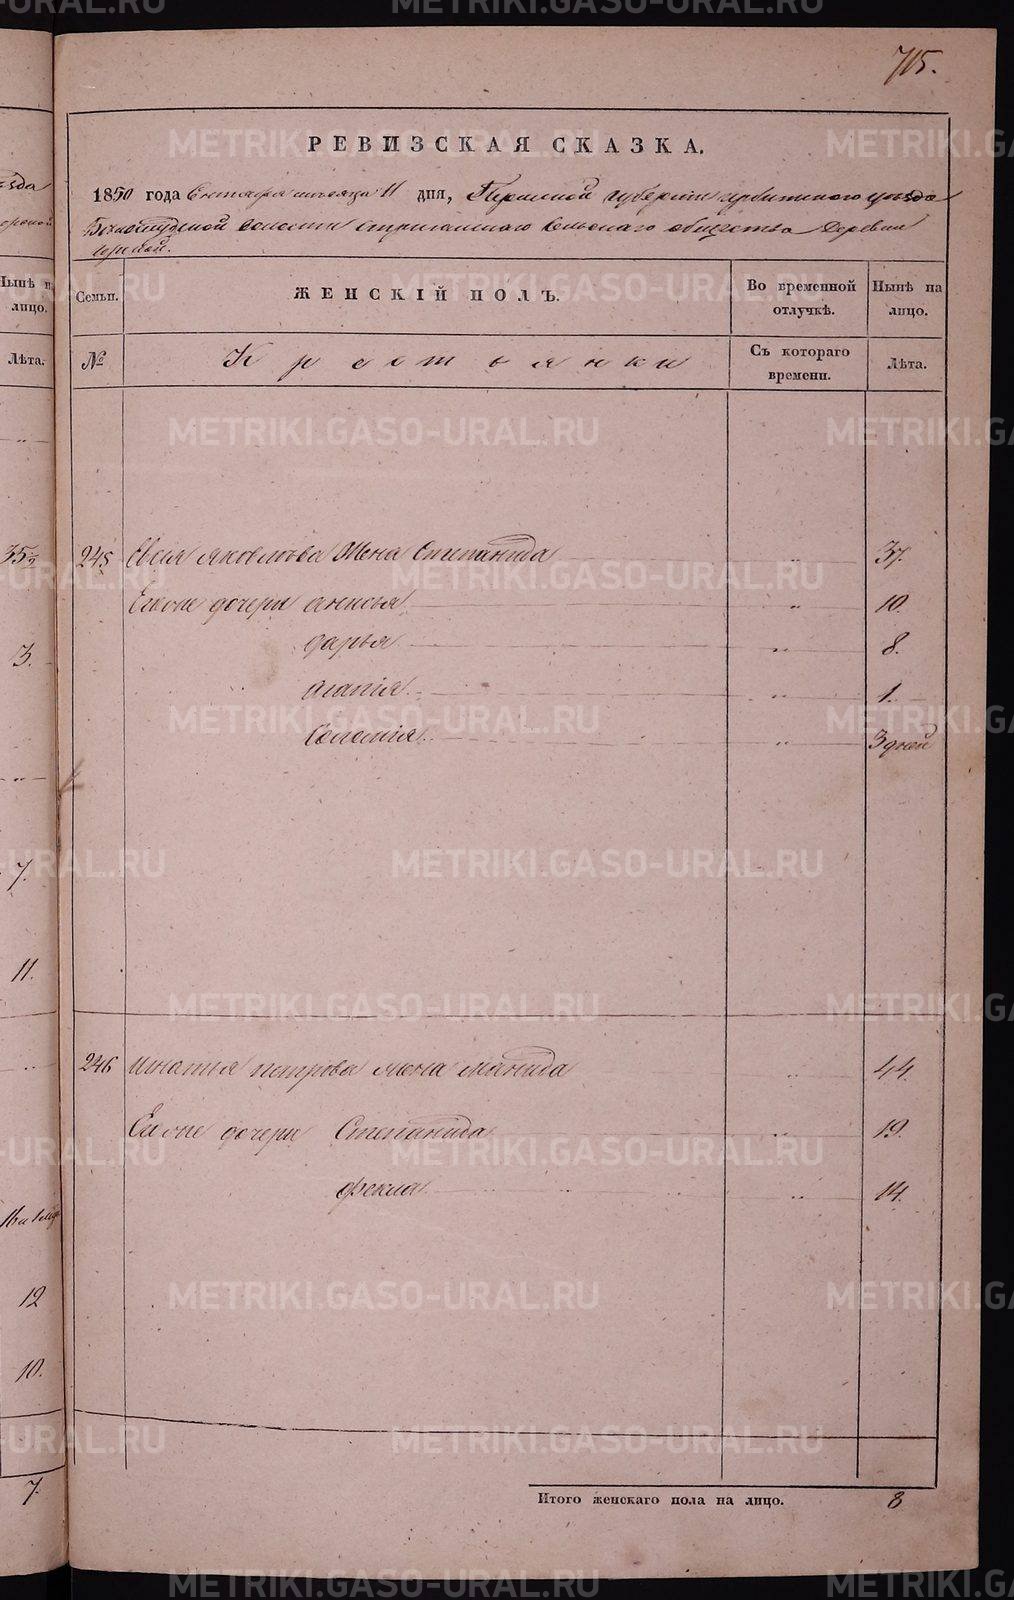 715.
РЕВИЗСКАЯ СКАЗКА.
1850 года Сентября месяца 11 дня, Пермской губернии Ирбитского уезда
волости Стриганского сельского общества Деревни
Семьи.
ЖЕНСКІЙ ПОЛЪ.
Во временной отлучкѣ.
Нынѣ на лицо.
№
Крестьянки
Съ котораго времени.
Лѣта.
245 Евсея Яковлева Жена Степанида " 37.
Ихоне дочери Анисья " 10.
Дарья " 8.
Агапія " 1.
Соломія " 3 дней
246 Игнатья Петрова Жена Манида " 44.
Ихоне дочери Степанида " 19.
Фекла " 14.
Итого женскаго пола на лицо. 8
Нынѣ н
лицо.
Лѣта.
3.
7.
11.
12
10.
7.
METRIKI.GASO-URAL.RU